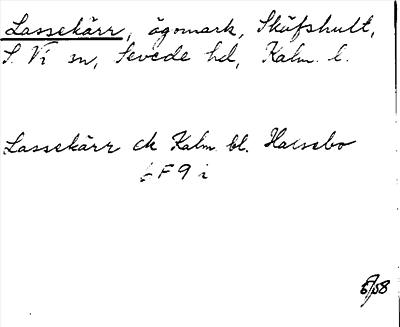 Lassekärr, ägomark, Skäfshult,
S. Vi sn, Sevede hd, Kalm. l.
Lassekärr ek Kalm. bl.
6 F 9 i
5/58